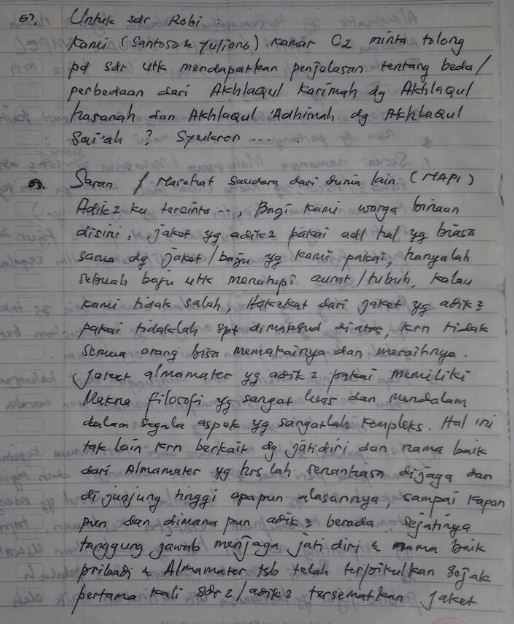 67. Untuk sdr Robi :
Kami (Santoso & Yuliono) kamar C2 minta tolong
pd sdr utk mendapatkan penjelasan tentang beda/
perbedaan dari Akhlaqul Karimah dg Akhlaqul
hasanah dan Akhlaqul Adhimah dg Akhlaqul
Sai'ah ? Syukron .....
Saran / Masehat Saudara dari dunia lain (NAPI)
Adik2 ku tercinta ..., Bagi kami warga binaan
disini, jaket yg adik2 pakai adl hal yg biasa
sama dg jaket/baju yg kami pakai, hanyalah
sebuah baju utk menutupi aurat/tubuh, kalau
kami tidak salah, Hakekat dari jaket yg adik2
pakai tidaklah spt dimaksud diatas, krn tidak
semua orang bisa memakainya dan meraihnya.
Jaket almamater yg adik2 pakai memiliki
Makna filosofi yg sangat luas dan mendalam
dalam segala aspek yg sangatlah kompleks. Hal ini
tak lain krn berkait dg jatidiri dan nama baik
dari Almamater yg hrs lah senantiasa dijaga dan
di junjung tinggi apapun alasannya, sampai kapan
pun dan dimana pun adik2 berada. Sejatinya
tanggung jawab menjaga jati diri & nama baik
pribadi & Almamater tsb telah terpikulkan sejak
pertama kali sdr2/adik2 tersematkan jaket